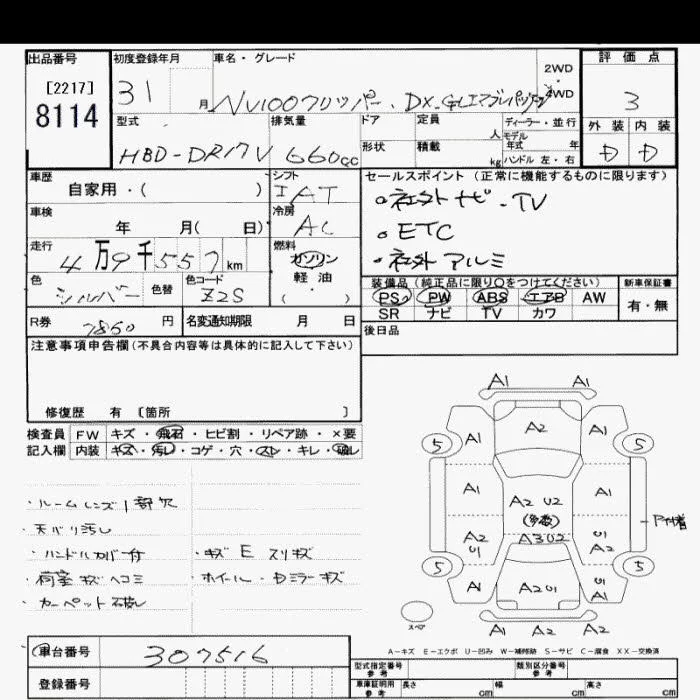 出品番号
[2217]
8114
初度登録年月
31 月
車名・グレード
NV100クリッパー . DX
2WD
4WD
評価点
3
外装 内装
D D
型式
HBD-DR17V
排気量
660cc
ドア
形状
定員 人
積載 kg
ディーラー・並行
モデル年式 年
ハンドル 左・右
車歴
自家用・( )
シフト
IAT
車検
年 月( 日)
冷房
AC
走行
4万9千557km
燃料
ガソリン
軽・油
( )
色
シルバー
色替
色コード
Z2S
R券
7860円
名変通知期限 月 日
セールスポイント (正常に機能するものに限ります)
・社外ナビ・TV
・ETC
・社外アルミ
装備品 (純正品に限り○をつけてください)
PS PW ABS エアB AW
SR ナビ TV カワ
新車保証書
有・無
後日品
注意事項申告欄(不具合内容等は具体的に記入して下さい)
修復歴 有 〔箇所 〕
検査員記入欄
FW キズ・飛石・ヒビ割・リペア跡・×要
内装 キズ・汚レ・コゲ・穴・スレ・キレ・破レ
・ルームレンズ1部欠
・天バリ汚レ
・ハンドルカバー付
・荷室キズヘコミ
・カーペット破レ
・キズ E スリキズ
・ホイール・Dミラーキズ
A1 A1
A1 A2 A1
5 5
A1 A2 U2 A1
(多数)
A2 U1 A3 U2 U1 A2
5 5
A1 A2 U1 U1 A1
A1 A2 A2
スペア
A-キズ E-エクボ U-凹み W-補修跡 S-サビ C-腐食 XX-交換済
車台番号
307516
登録番号
型式指定番号 参考
類別区分番号 参考
車庫証明用 参考
長さ cm
幅 cm
高さ cm